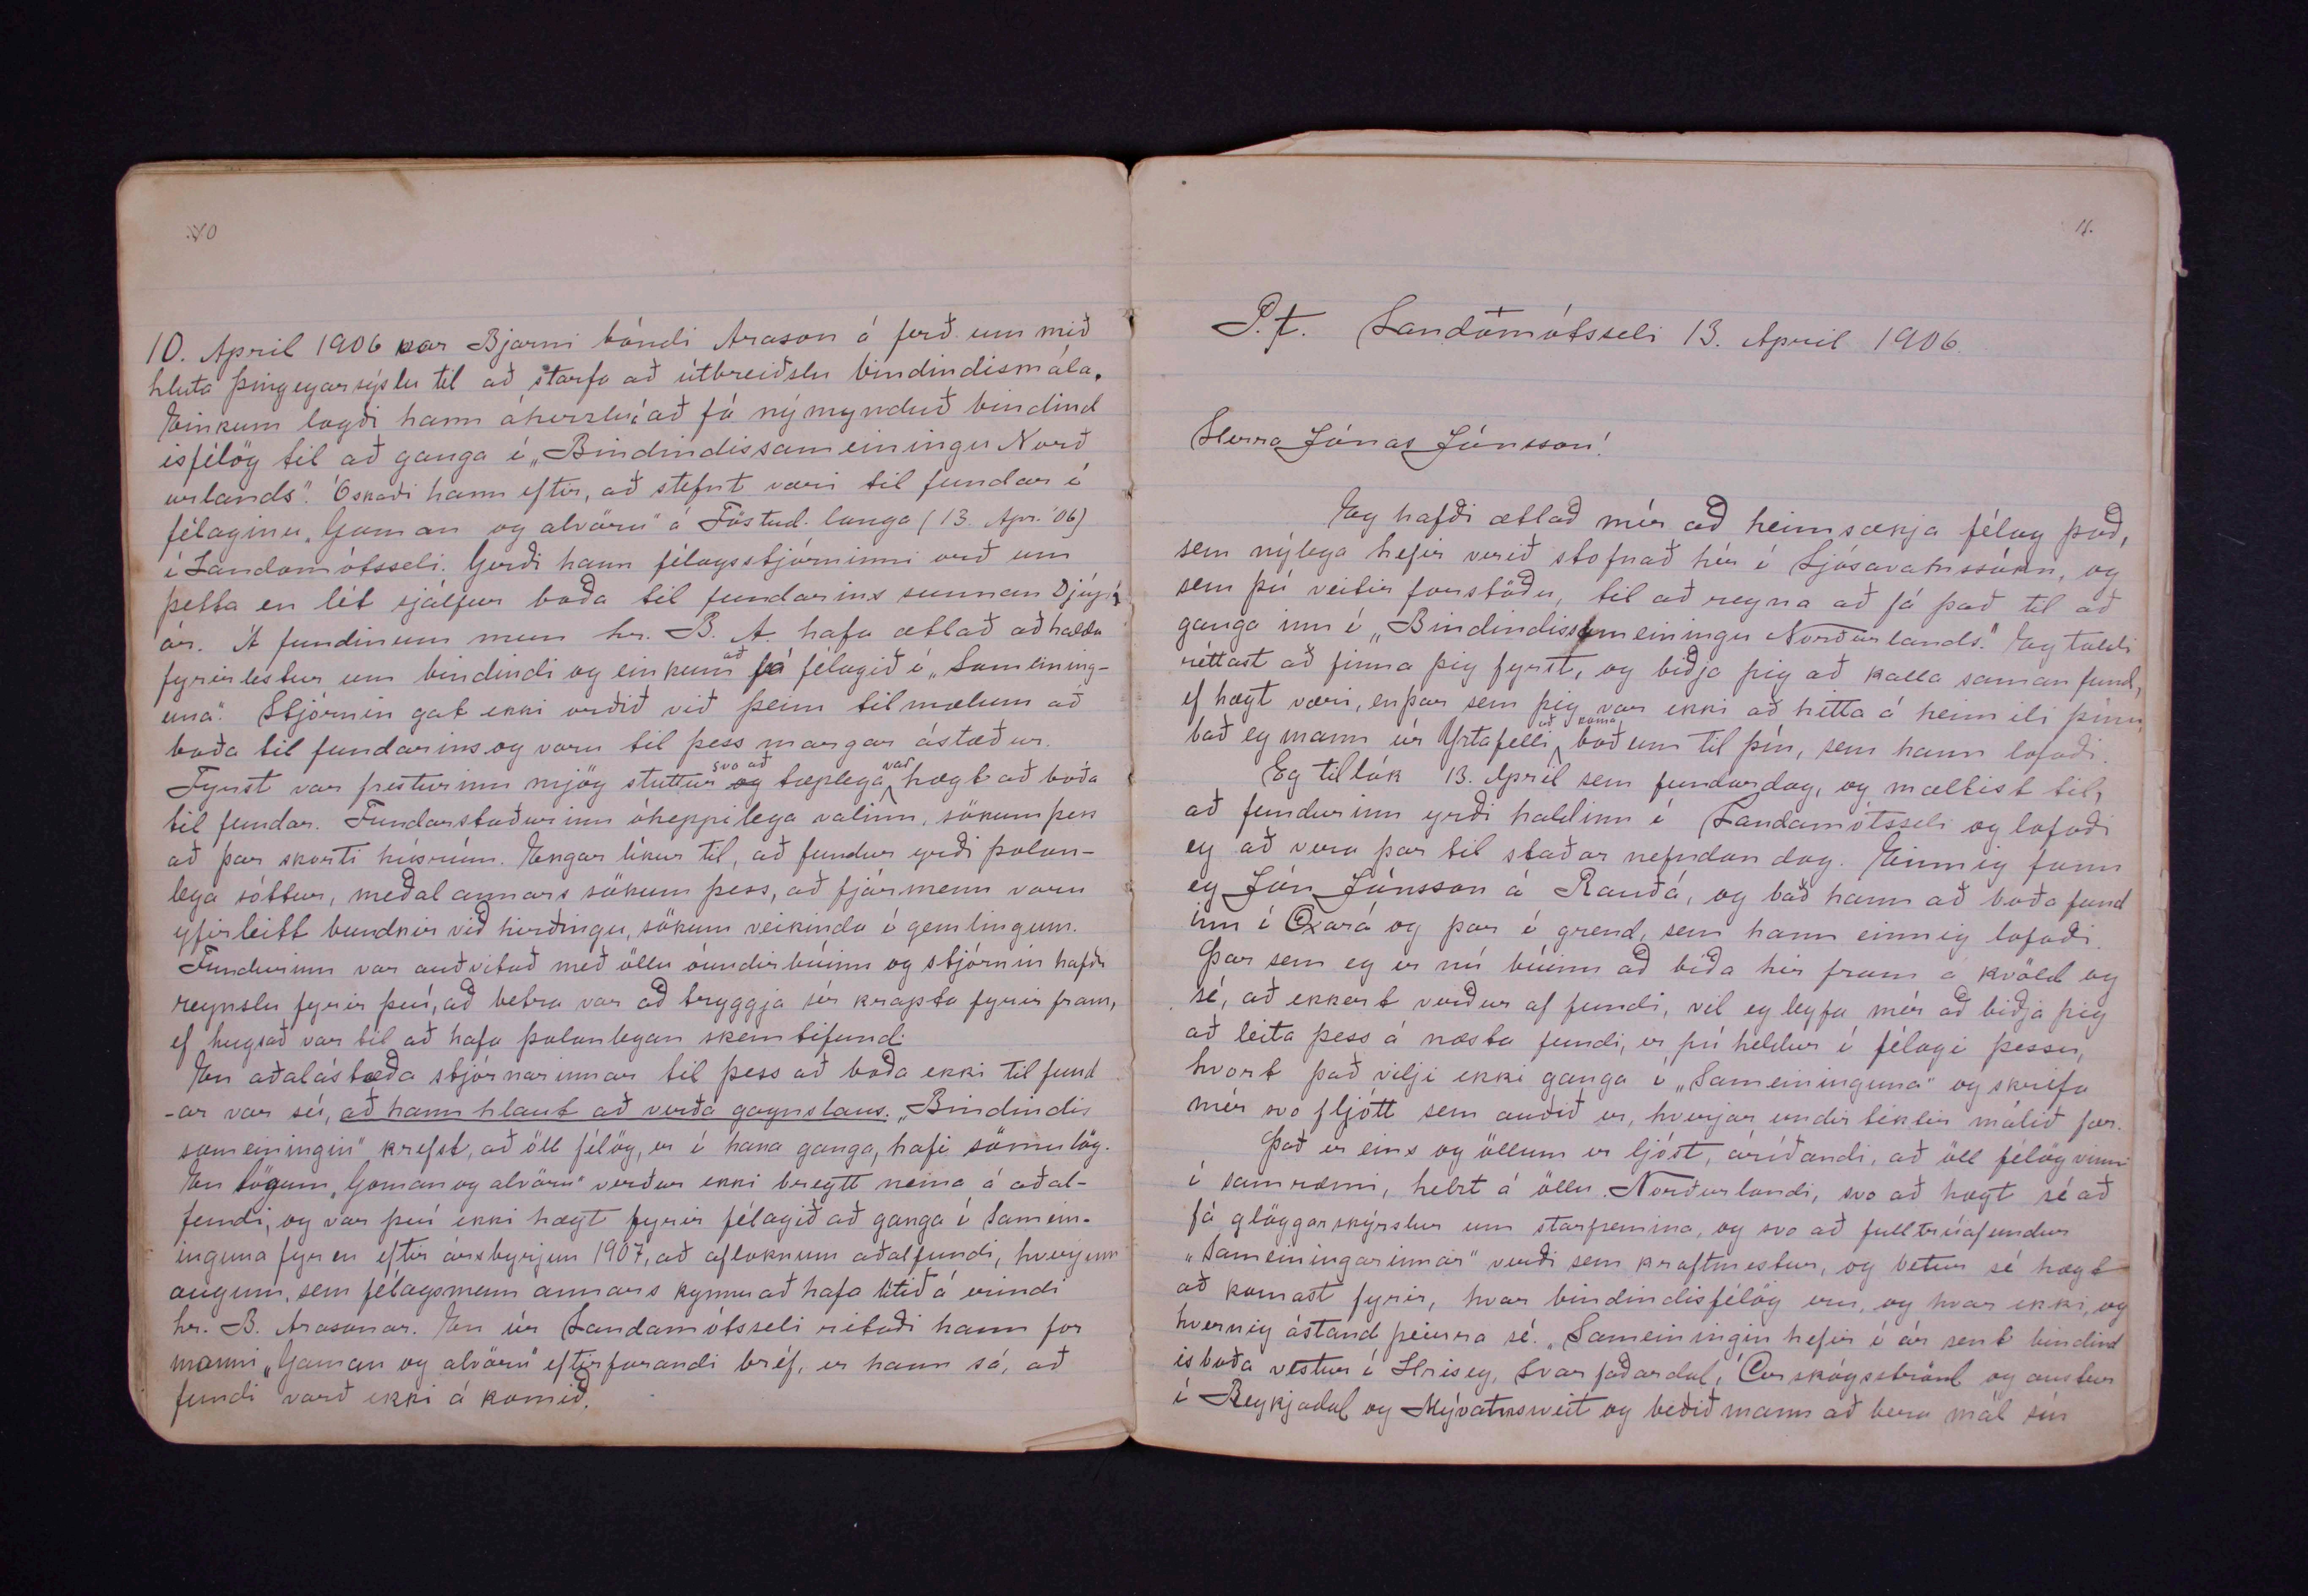 10
10. April 1906 var Bjarni bóndi Arason á ferð um mið
hluta Þingeyarsýslu til að starfa að útbreiðslu bindindismála.
Einkum lagði hann áherzlu á að fá nýmynduð bindind
isfélög til að ganga í „Bindindissameiningu Norð
urlands". Óskaði hann eftir, að stefnt væri til fundar í
félaginu „Gaman og alvöru" á Föstud. langa (13. Apr. '06)
í Landamótsseli. Gerði hann félagsstjórninni orð um
þetta en lét sjálfur boða til fundarins sunnan Djúpá
ár. Á fundinum mun hr. B. A. hafa ætlað að halda
fyrirlestur um bindindi og einkum að fá félagið í „Sameining-
una". Stjórnin gat ekki orðið við þeim tilmælum að
boða til fundarins og voru til þess margar ástæður.
Fyrst var fresturinn mjög stuttur svo að tæplega var hægt að boða
til fundar. Fundarstaðurinn óheppilega valinn, sökum þess
að þar skorti húsrúm. Engar líkur til, að fundur yrði þolan-
lega sóttur, meðal annars sökum þess, að fjármenn voru
yfirleitt bundnir við hirðingu, sökum veikinda í gemlingum.
Fundurinn var auðvitað með öllu óundirbúinn og stjórnin hafði
reynslu fyrir því, að betra var að tryggja sér krapta fyrir fram,
ef hugsað var til að hafa þolanlegan skemtifund.
En aðalástæða stjórnarinnar til þess að boða ekki til fund
-ar var sú, að hann hlaut að verða gagnslaus. „Bindindis
sameiningin" krefst, að öll félög, er í hana ganga, hafi sömu lög.
En lögum „Gaman og alvöru" verður ekki breytt nema á aðal-
fundi, og var því ekki hægt fyrir félagið að ganga í Samein-
inguna fyr en eftir ársbyrjun 1907, að afloknum aðalfundi, hverjum
augum, sem félagsmenn annars kynnu að hafa litið á erindi
hr. B. Arasonar. En úr Landamótsseli ritaði hann for
manni „Gaman og alvöru" eftirfarandi bréf, er hann sá, að
fundi varð ekki á komið.
11.
P.t. Landamótsseli 13. Apríl 1906.
Herra Jónas Jónsson!
Eg hafði ætlað mér að heimsækja félag það,
sem nýlega hefir verið stofnað hér í Ljósavatnssókn, og
sem þú veitir forstöðu, til að reyna að fá það til að
ganga inn í „Bindindissameiningu Norðurlands." Eg taldi
réttast að finna þig fyrst, og biðja þig að kalla saman fund,
ef hægt væri, en þar sem þig var ekki að hitta á heimili þínu,
bað eg mann úr Yztafelli að koma boðum til þín, sem hann lofaði.
Eg tiltók 13. Apríl sem fundardag, og mæltist til,
að fundurinn yrði haldinn í Landamótsseli og lofaði
eg að vera þar til staðar nefndan dag. Einnig fann
eg Jón Jónsson á Rauðá, og bað hann að boða fund
inn í Öxará og þar í grend, sem hann einnig lofaði.
Þar sem eg er nú búinn að bíða hér fram á kvöld og
sé, að ekkert verður af fundi, vil eg leyfa mér að biðja þig
að leita þess á næsta fundi, er þú heldur í félagi þessu,
hvort það vilji ekki ganga í „Sameininguna" og skrifa
mér svo fljótt sem auðið er, hverjar undirtektir málið fær.
Það er eins og öllum er ljóst, áríðandi, að öll félög vinni
í samræmi, helzt á öllu Norðurlandi, svo að hægt sé að
fá glöggar skýrslur um starfsemina, og svo að fulltrúafundur
„Sameiningarinnar" verði sem kraftmestur, og betur sé hægt
að komast fyrir, hvar bindindisfélög eru, og hvar ekki, og
hvernig ástand þeirra sé. „Sameiningin hefir í ár sent bindind
isboða vestur í Hrísey, Svarfaðardal, Árskógsströnd og austur
í Reykjadal og Mývatnsveit og beðið mann að bera mál sín